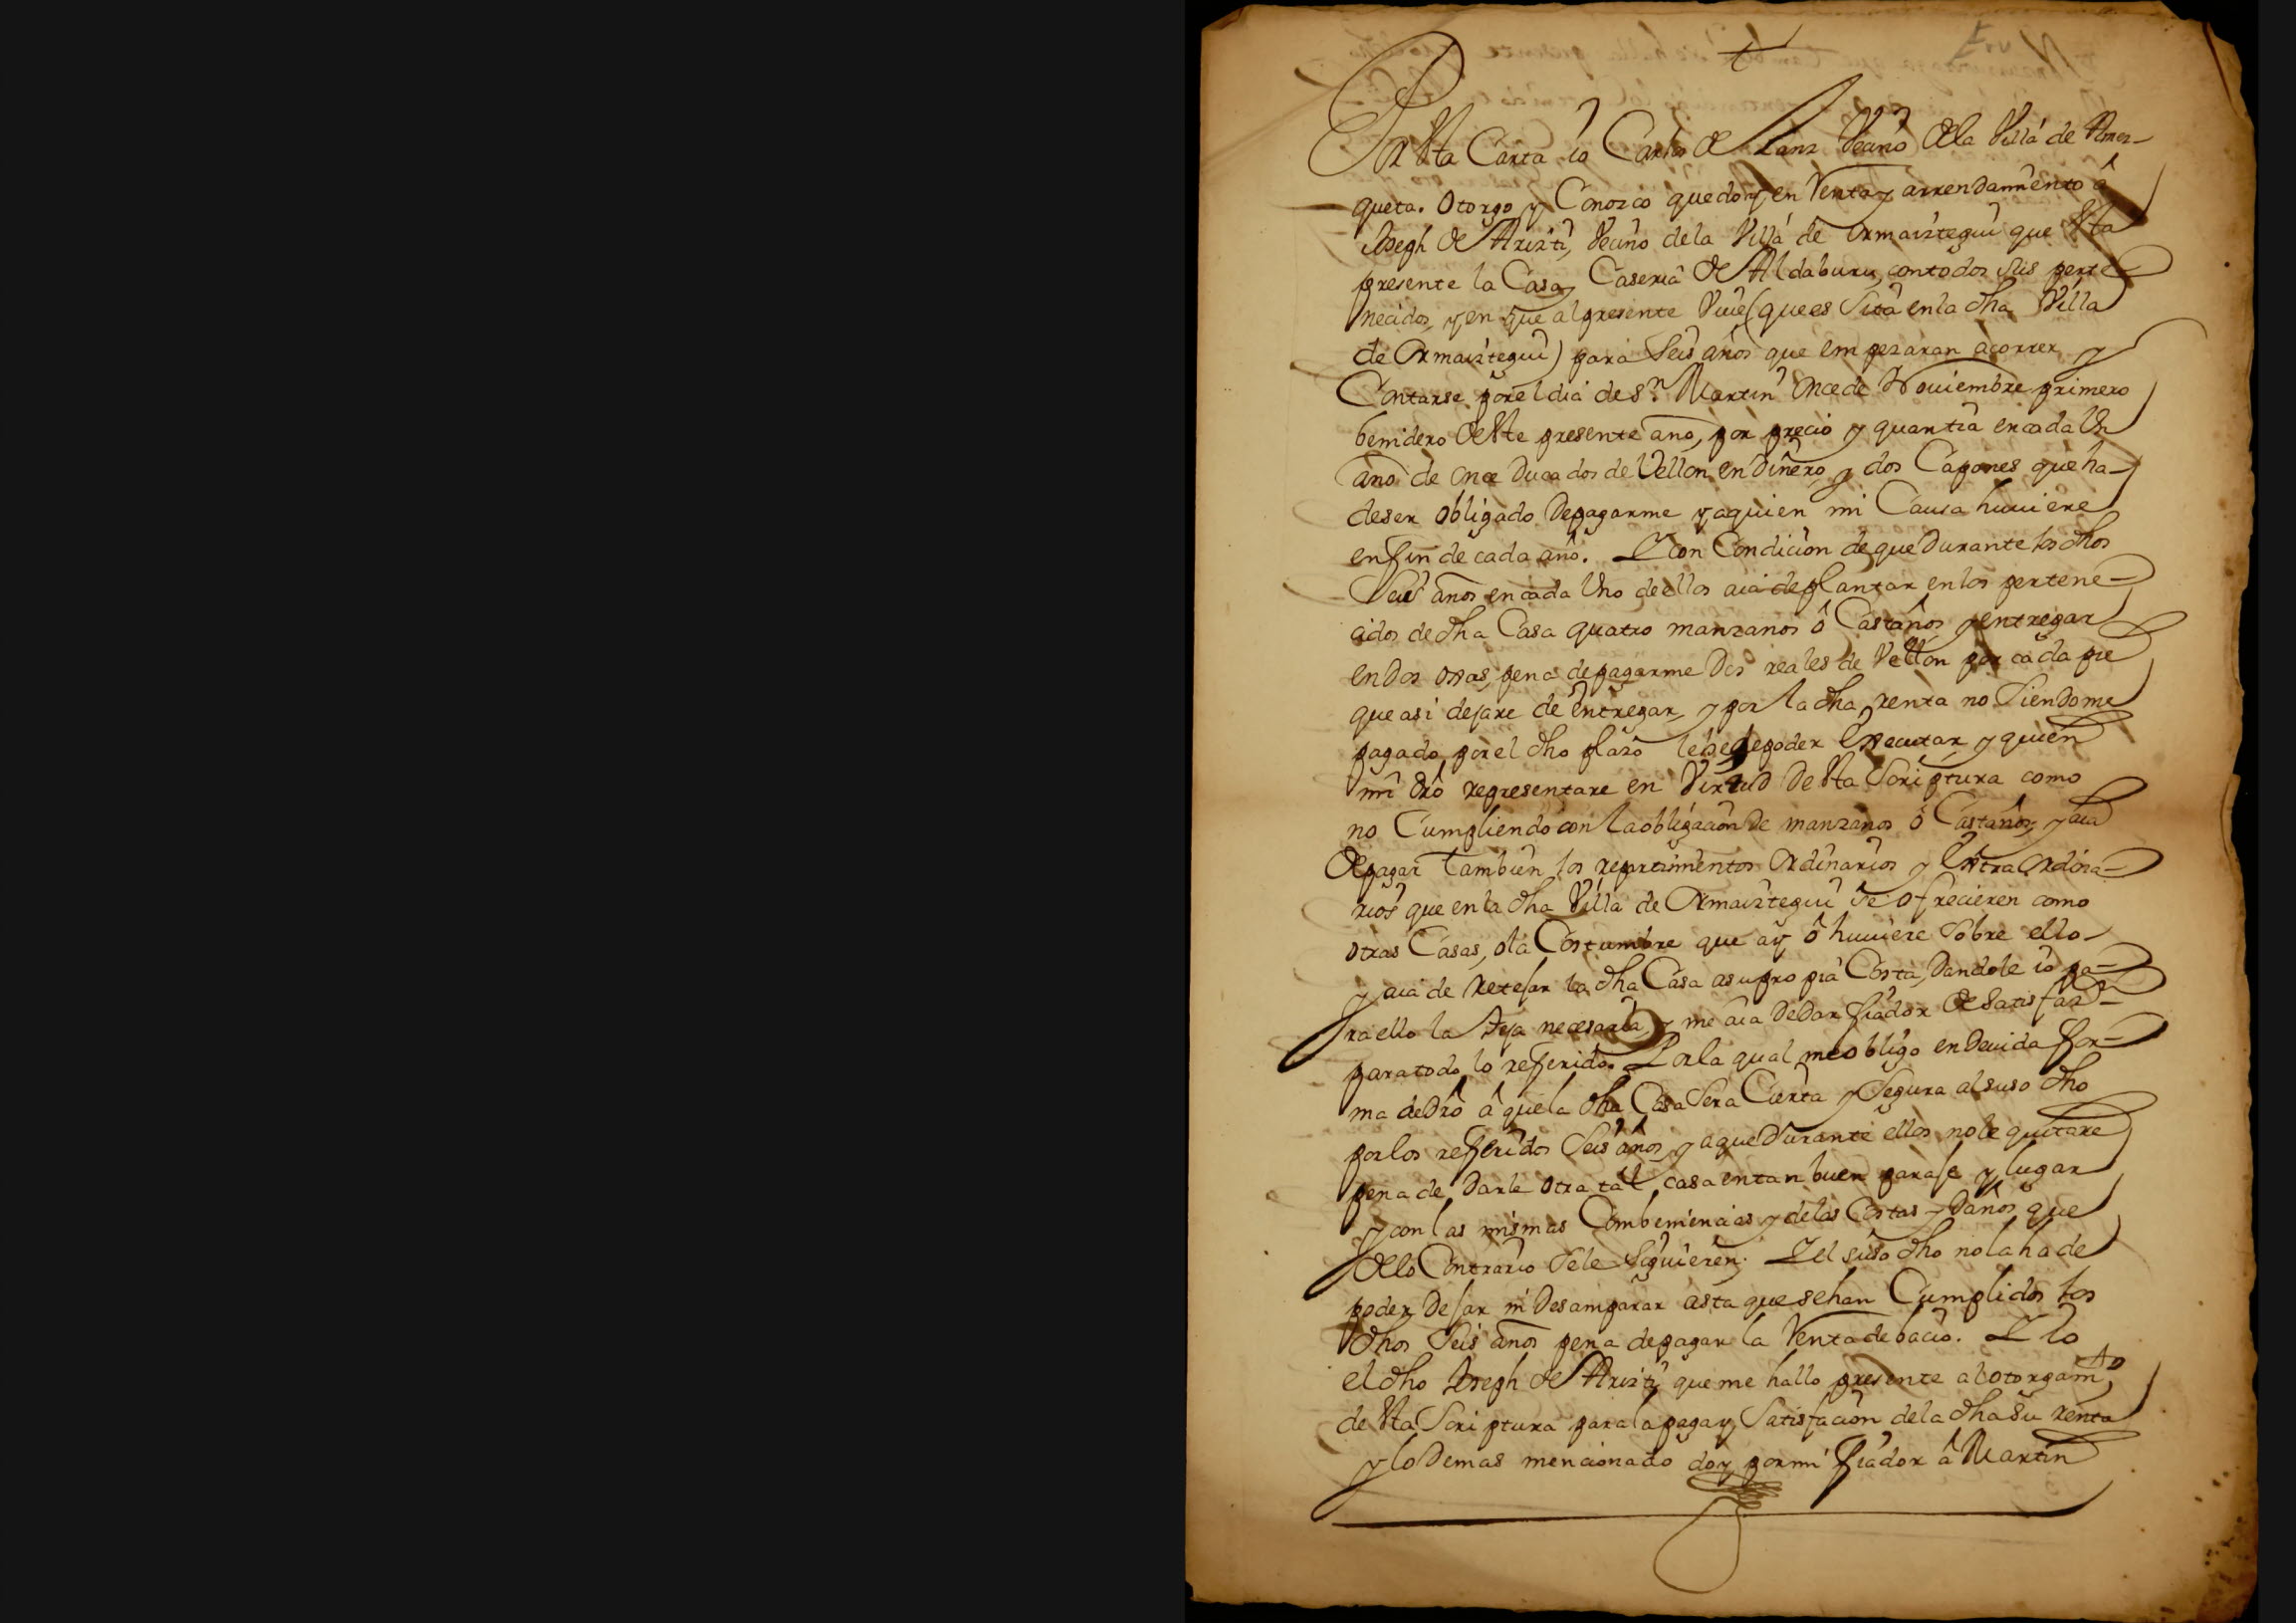 +
Por esta Carta io Carlos de Lanz Veciño de la Villa de Amez-
queta. otorgo y Conozco que doy en Renta y arrendamiento â
Joseph de Arizti, Veciño de la Villa de Ormaiztegui que esta
presente la Casa, Caseria de Aldaburu, con todos sus perte-
necidos, y en que al presente Viue (que es Sita en la dha Villa
de Ormaiztegui) para Seis años que empezaran acorrer y
Contarse por el dia de Sn. Martin Once de Nouiembre primero
benidero de este presente año, por precio y quantia en cada Un
año de once Ducados de Vellon en Dinero, y dos Capones que ha-
de ser obligado De pagarme y aquien mi Causa huuiere
en fin de cada año. Y Con Condicion de que Durante los dhos
Seis años en cada Uno de ellos aia de plantar en los pertene-
cidos de dha Casa quatro manzanos ô Castaños y entregar
en Dos oxas, pena de pagarme Dos reales de Vellon por cada pie
que asi dejare de entregar, y por la dha renta no Siendome
pagado, por el dho plazo le he de poder Executar, y quien
mi dro representare en Virtud De esta Scriptura como
no Cumpliendo con la obligacion De manzanos ô Castaños, y aia
de pagar tambien los repartimientos Ordinarios y Extra Ordina-
rios que en la dha Villa de Ormaiztegui Se ofrecieren como
otras Casas, ô la Costumbre que ay ô huuiere Sobre ello
y aia de retejar la dha Casa a su propia Costa, Dandole io pa-
ra ello la teja necesaria, y me aia De Dar fiador de satisfaz.n
para todo lo referido. Por la qual me obligo en Deuida for-
ma de Dro â que la dha Casa Sera Cierta y Segura al suso dho
por los referidos Seis años, y a que Durante ellos no le quitare
pena de Darle otra tal casa en tan buen paraje y lugar
y con las mismas Combeniencias y de las Costas y Daños que
de lo Contrario Se le Siguieren. Y el suso dho no la ha de
poder Dejar ni Desamparar asta que se han Cumplidos los
dhos Seis años pena de pagar la Renta de bacio. Y Io
el dho Joseph de Arizti que me hallo presente al otorgamto
de esta Scriptura para la paga y Satisfacion de la dha su renta
y lo Demas mencionado doy por mi fiador â Martin